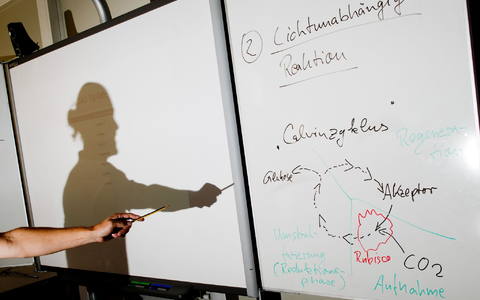 2 Lichtunabhängig
Reaktion
"Calvinzyklus"
Regenera-
tion
Glukose
Akzeptor
Umstruk-
turierung
(Reduktions-
phase)
Rubisco
CO2
Aufnahme